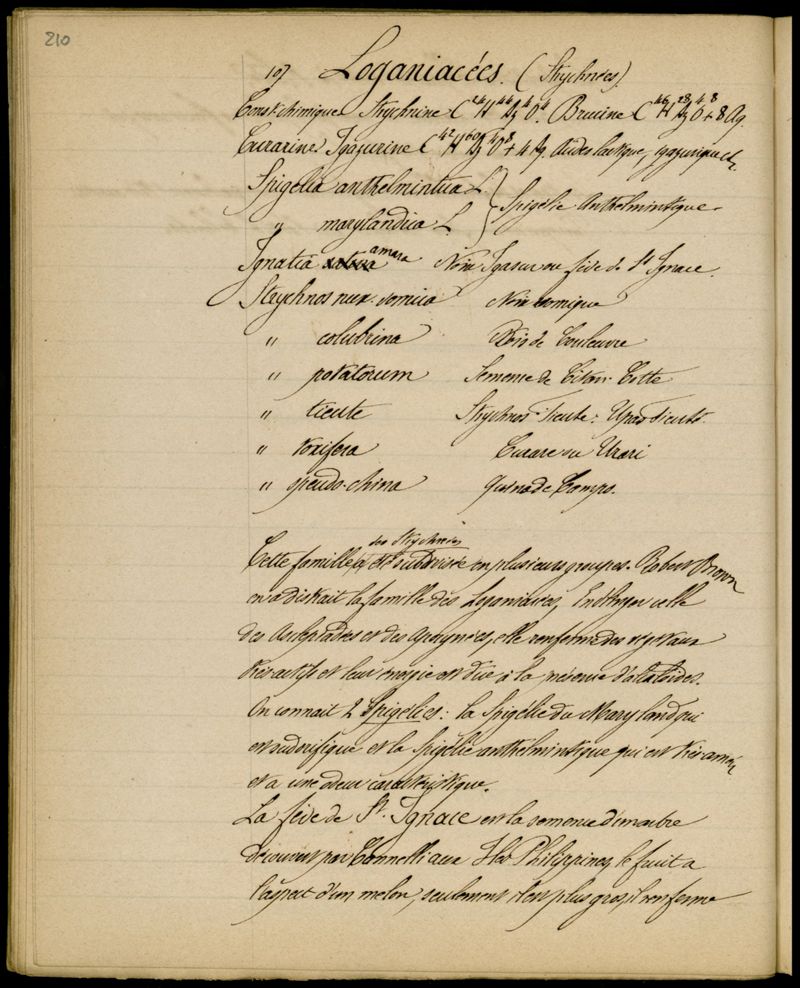 210
107 Loganiacées. (Strychnées)
Const. chimique Strychnine C H Az O. Brucine C H Az O + 8 Aq.
Curarine. Igazurine C H Az O + 4 Aq. Acides lactique, igazurique etc
Spigelia anthelmintica L. } Spigélie Anthelmintique
" marylandica L.
Ignatia amara Noix Igasur ou fève de St Ignace.
Strychnos nux-vomica Noix vomique
" colubrina Bois de Couleuvre
" potatorum Semence de Titan-Cotte
" tieute Strychnos-Tieute: Upas Tieuté.
" toxifera Curare ou Urari
" pseudo-china quina de Campo.
des Strychnées
Cette famille a été subdivisée en plusieurs groupes. Robert Brown
en a distrait la famille des Loganiacées, Endlicher celle
des Asclepiadées et des Apocynées, elle renferme des végétaux
très actifs et leur energie est due à la présence d'alcaloïdes.
On connait 2 Spigélies: la Spigélie du Maryland qui
est sudorifique et la Spigélie anthelmintique qui est très amère
et a une odeur caractéristique.
La fève de St. Ignace est la semence d'un arbre
découvert par aux Iles Philippines, le fruit a
l'aspect d'un melon, seulement il est plus gros, il renferme